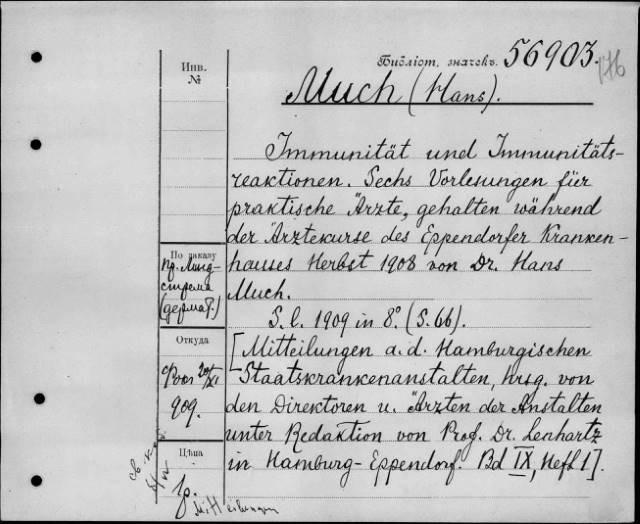 Библіот. значекъ. 56903.
Инв.
№
Much (Hans).
Immunität und Immunitäts-
reaktionen. Sechs Vorlesungen für
praktische Ärzte, gehalten während
der Ärztekurse des Eppendorfer Kranken-
hauses Herbst 1908 von Dr. Hans
Much.
S. l. 1909 in 8º. (S. 66).
[Mitteilungen a. d. Hamburgischen
Staatskrankenanstalten, hrsg. von
den Direktoren u. Ärzten der Anstalten
unter Redaktion von Prof. Dr. Lenhartz
in Hamburg-Eppendorf. Bd IX, Heft 1].
По заказу
пр. Линд-
стрема
(дермат.)
Откуда
909.
Цѣна
Mitteilungen